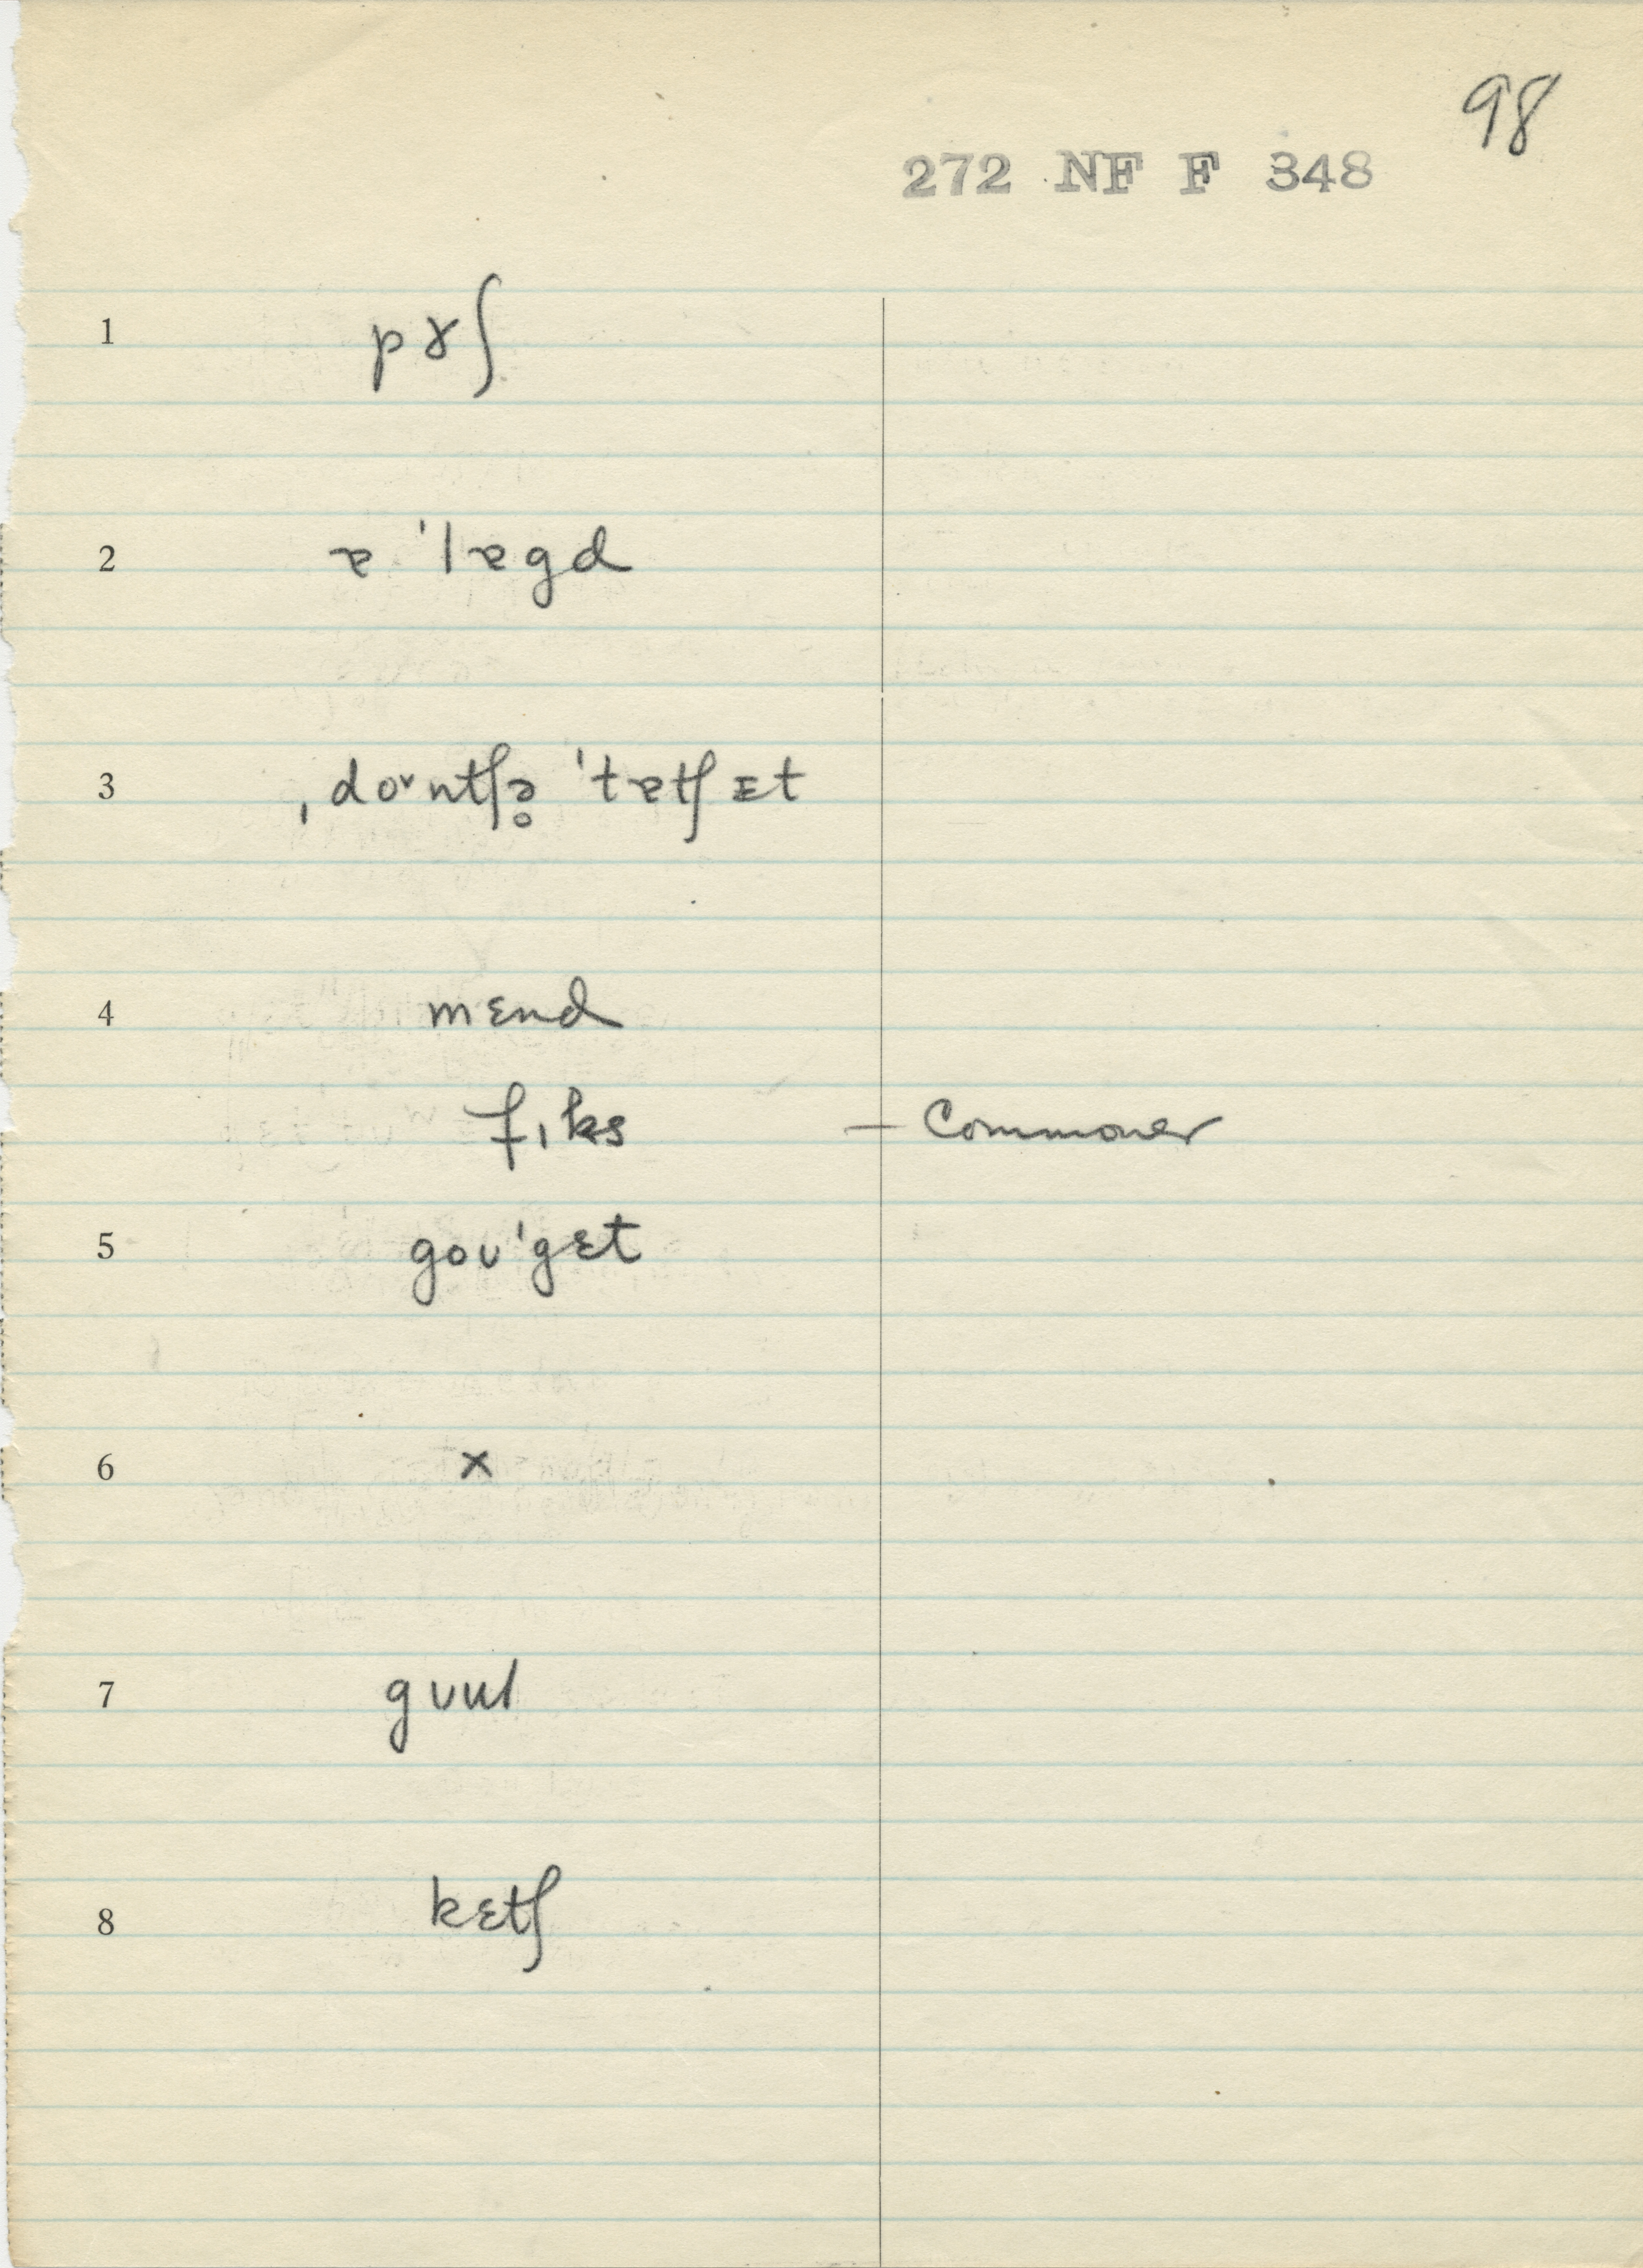 98
272 NF F 348
1 pɤʃ
2 ɐ ˈlɐgd
3 ˌdoᴠntʃə̥ ˈtɐtʃɪt
4 mɛnd
fɪks — Commoner
5 goʊˈgɛt
6 x
7 gʊɯl
8 kɛtʃ